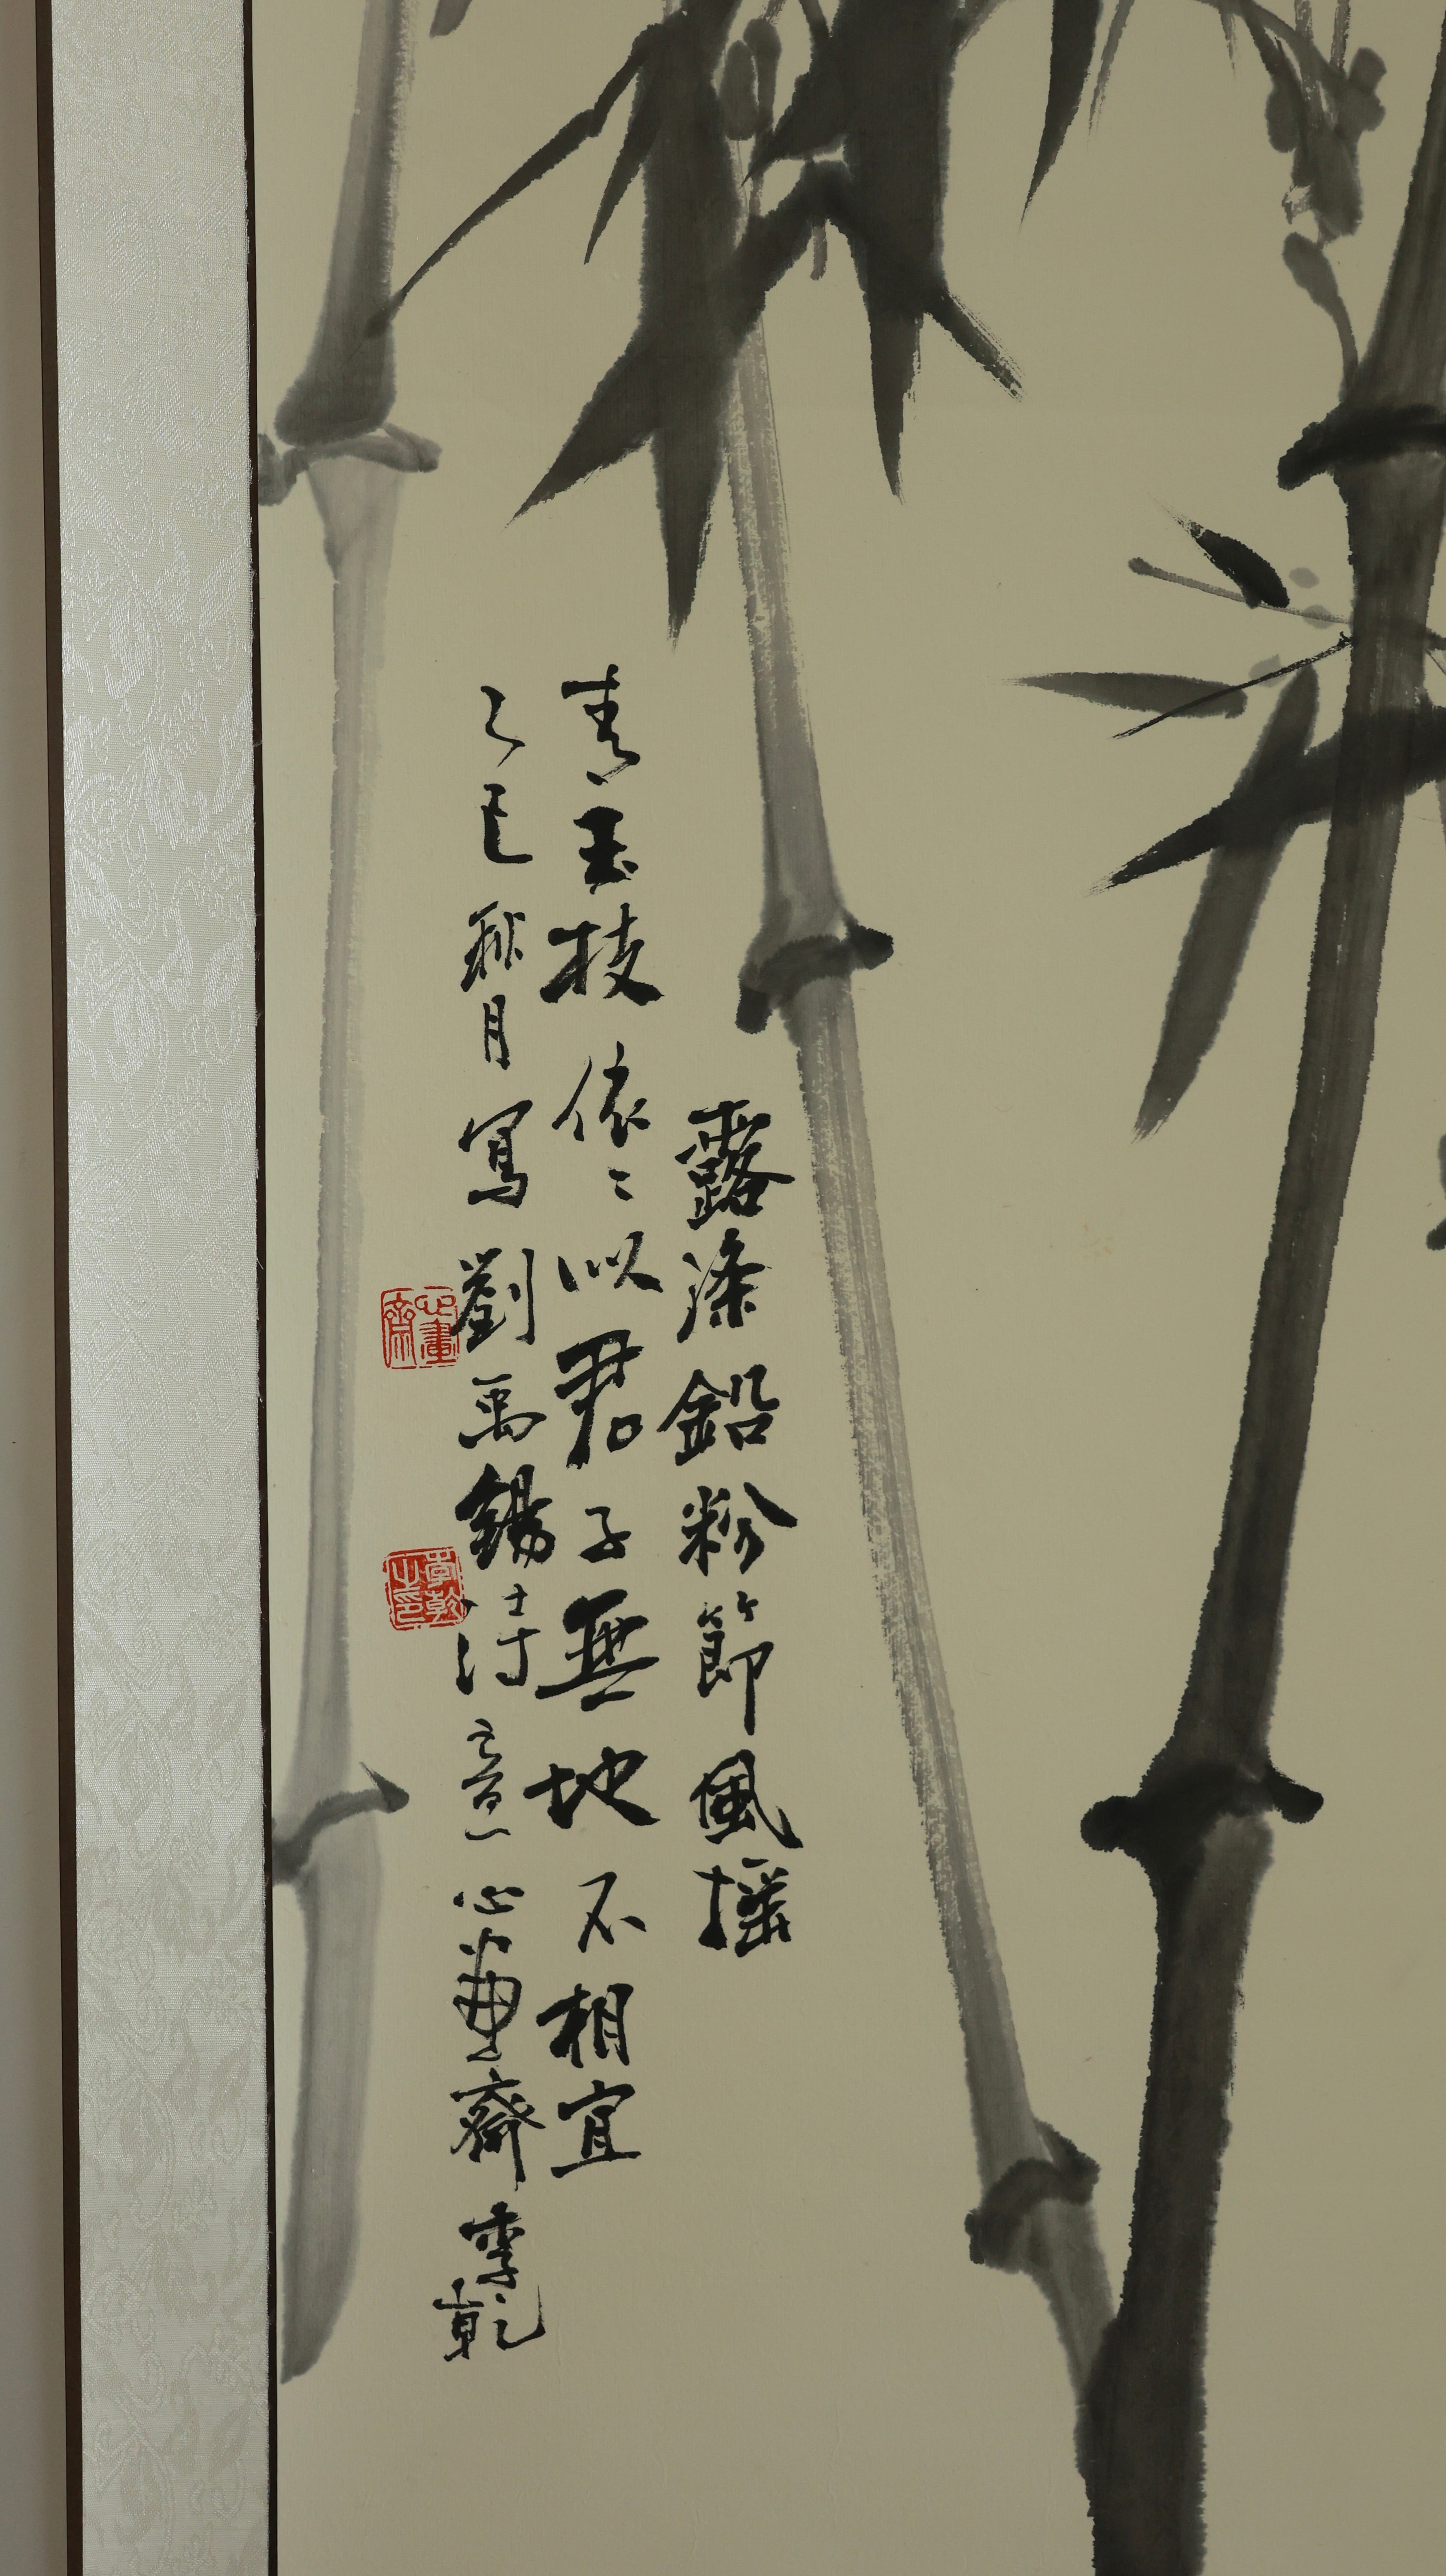 露滌鉛粉節風搖
青玉枝依〻似君子無地不相宜
乙巳秋月寫劉禹錫詩意心畫齋李乾
心畫齋
李乾之印